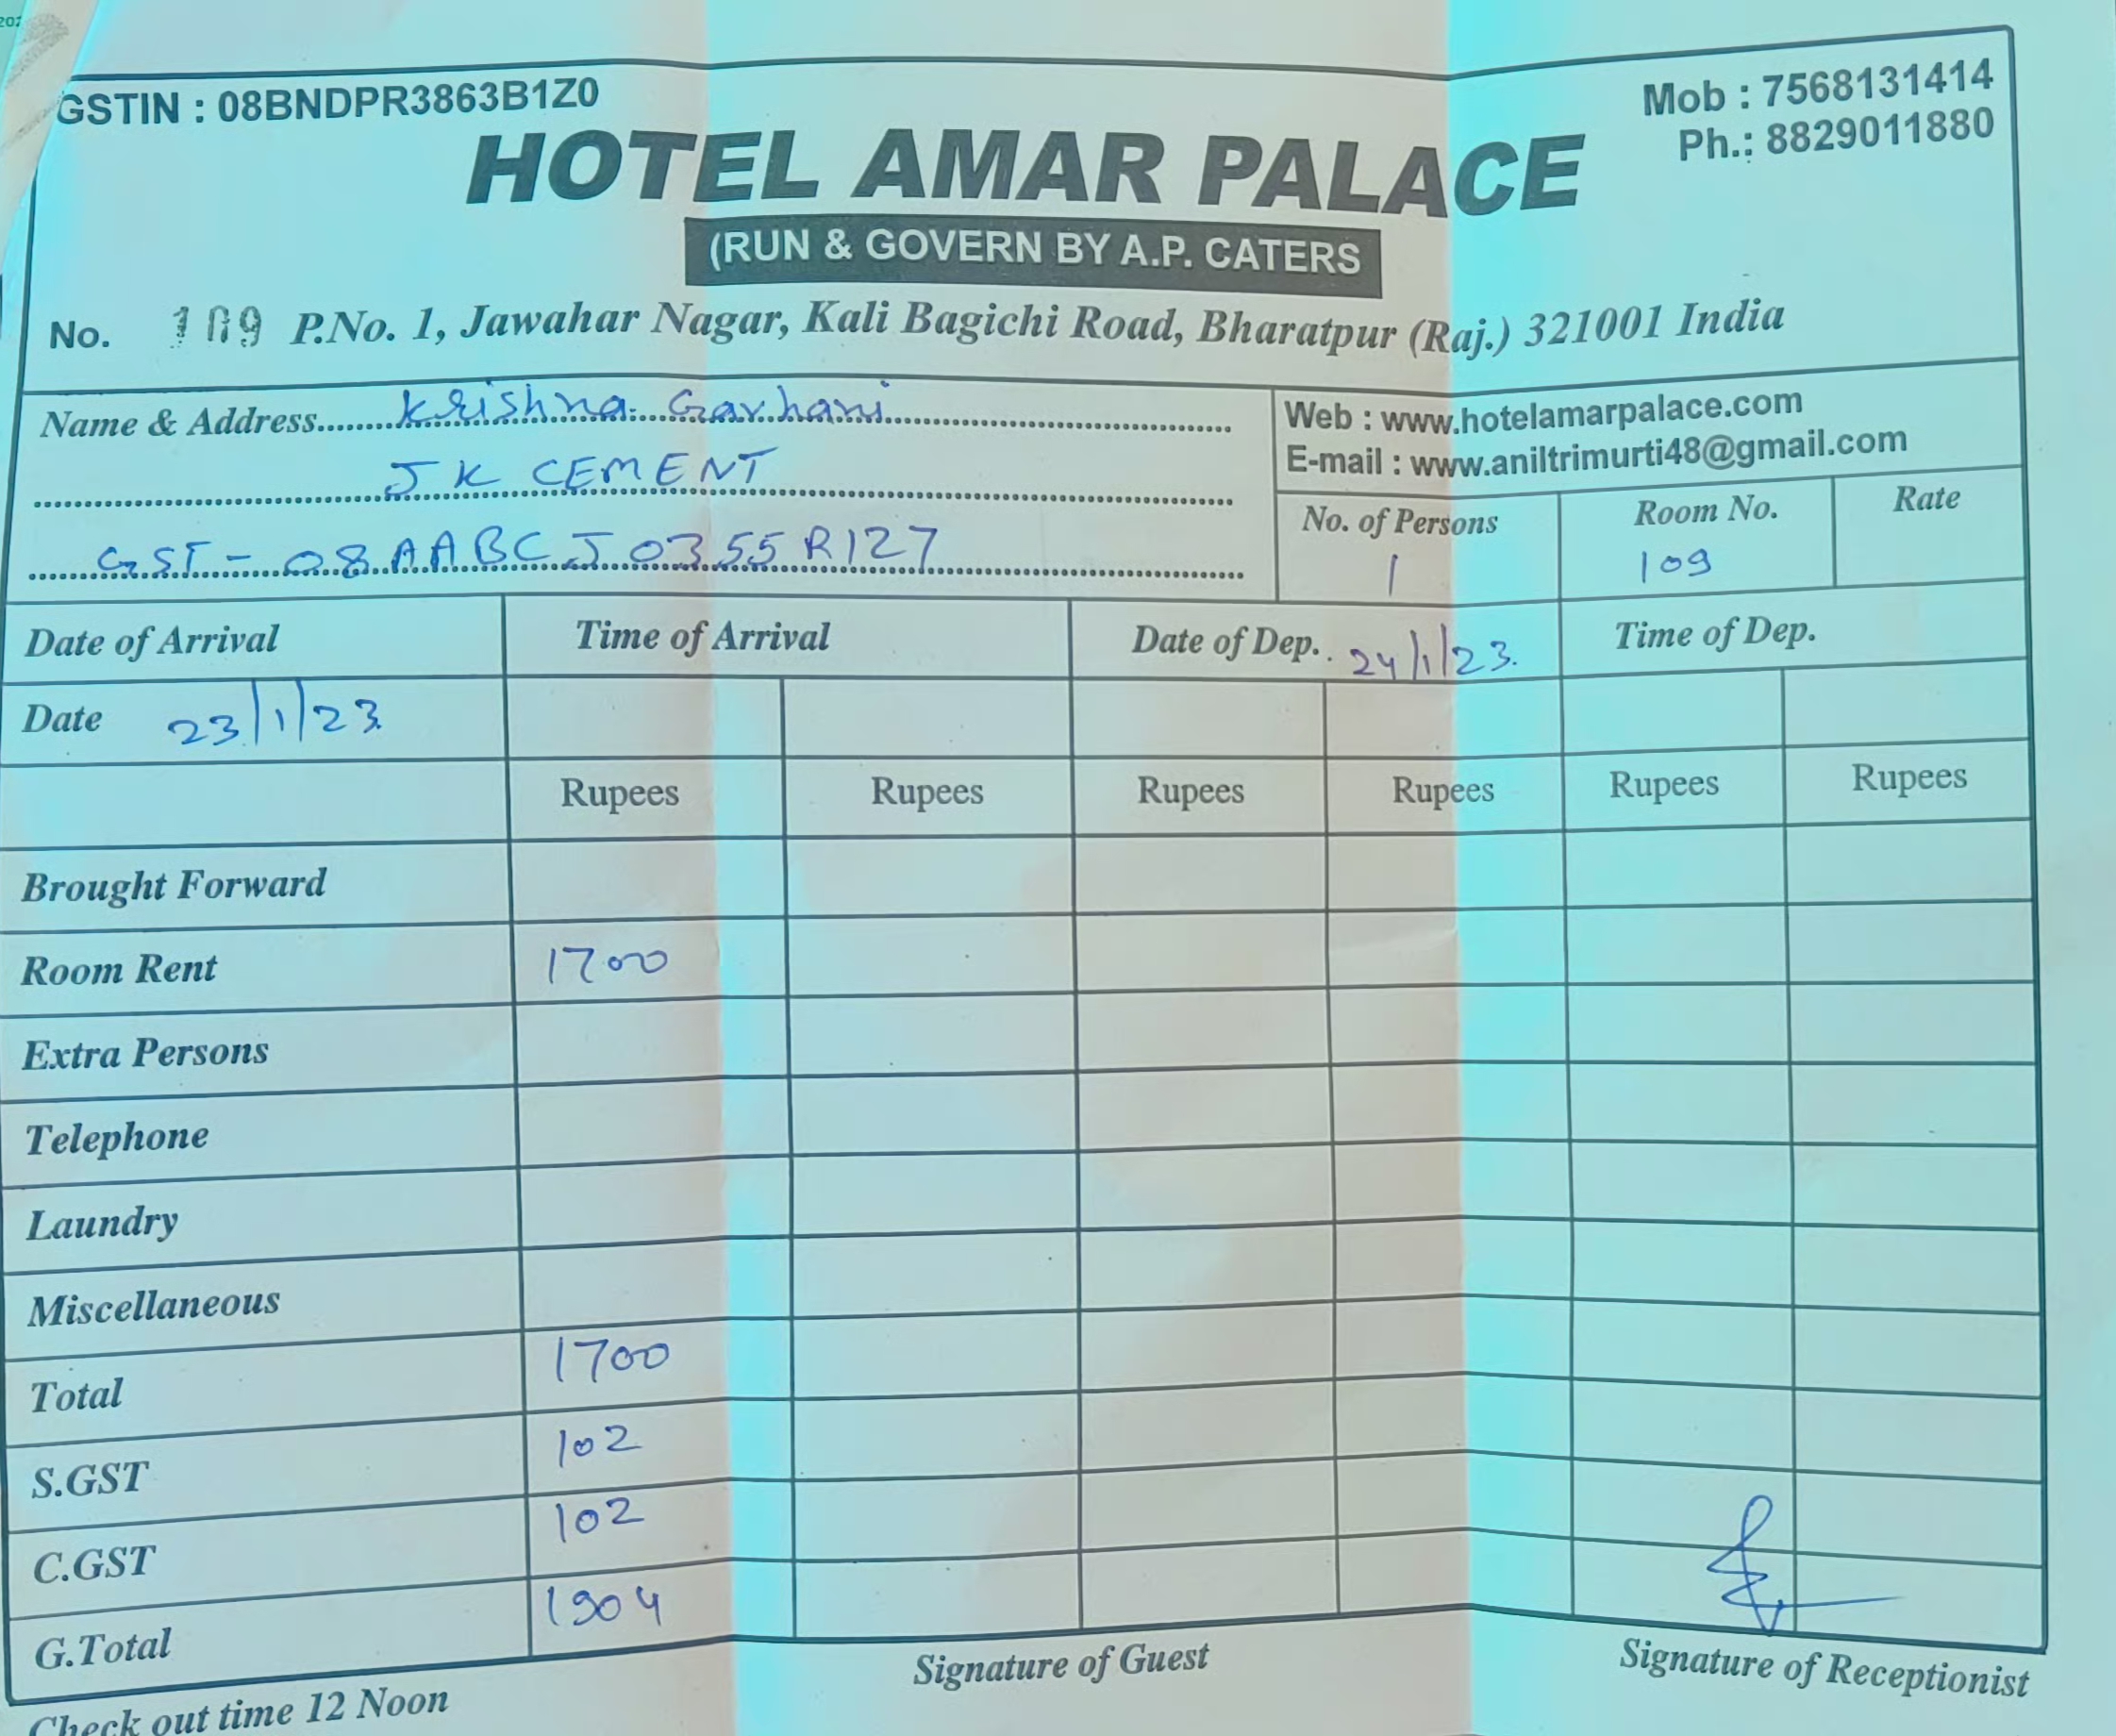 GSTIN : 08BNDPR3863B1Z0
Mob : 7568131414
Ph.: 8829011880
HOTEL AMAR PALACE
(RUN & GOVERN BY A.P. CATERS
No. 109 P.No. 1, Jawahar Nagar, Kali Bagichi Road, Bharatpur (Raj.) 321001 India
Name & Address Krishna Gavhani
JK CEMENT
GST - 08AABCJ0355R127
Web : www.hotelamarpalace.com
E-mail : www.aniltrimurti48@gmail.com
No. of Persons Room No. Rate
1 109
Date of Arrival Time of Arrival Date of Dep. 24/1/23 Time of Dep.
Date 23/1/23
Rupees Rupees Rupees Rupees Rupees Rupees
Brought Forward
Room Rent 1700
Extra Persons
Telephone
Laundry
Miscellaneous
Total 1700
S.GST 102
C.GST 102
G.Total 1904
Signature of Guest Signature of Receptionist
Check out time 12 Noon